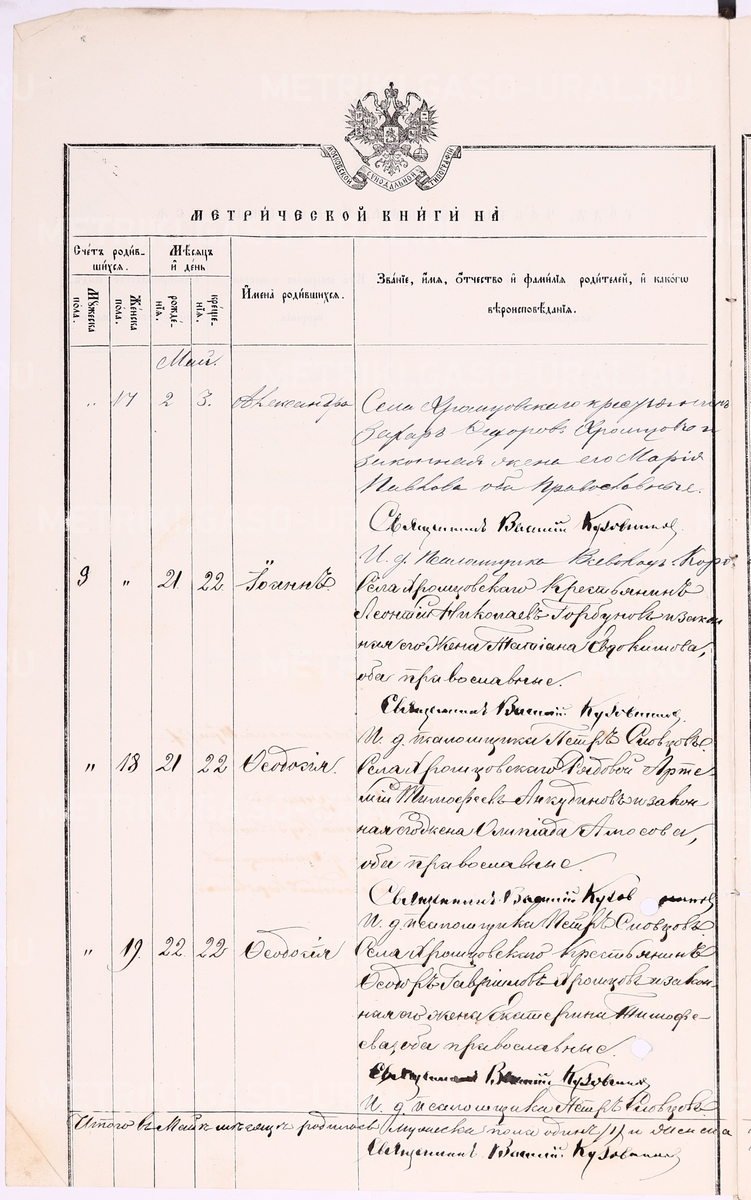 МОСКОВСКОЙ СѴНОДАЛЬНОЙ ТИПОГРАФІИ
МЕТРИ́ЧЕСКОЙ КНИ́ГИ НА̀
Сче́тъ роди́в-
шихся.
Мѣсяцъ
и̂ де́нь
И̂мена̀ роди́вшихся.
Зва́нїе, и́мя, о́тчество и̂ фами́лїя роди́телей, и̂ како́гѡ
вѣроисповѣ́данїя.
Мꙋ́жеска
по́ла.
Же́нска
по́ла.
рожде́-
нїя.
креще́-
нїя.
Май.
„ 17 2 3. Александра
Села Хромцовскаго крестьянинъ
Захаръ Ѳедоровъ Хромцовъ и
законная жена его Марія
Павлова оба Православные.
Священникъ Василій Кузовниковъ
И. д. Псаломщика Всеволодъ
9 „ 21 22 Іоаннъ
Села Хромцовскаго Крестьянинъ
Леонтій Николаевъ Горбуновъ и закон
ная его Жена Татіана Евдокимова,
оба православные.
Священникъ Василій Кузовниковъ
И. д. псаломщика Петръ Словцовъ.
„ 18 21 22 Ѳеодосія.
Села Хромцовскаго Рядовой Арте-
мій Тимофеевъ Анкудиновъ и закон-
ная его жена Олипіада Амосова,
оба православные.
Священникъ Василій
И. д. псаломщика Петръ Словцовъ.
„ 19. 22 22 Ѳеодосія
Села Хромцовскаго Крестьянинъ
Ѳеодоръ Гавриловъ Хромцовъ и закон-
ная его жена Екатерина Тимофе-
ева, оба православные.
Священникъ Василій Кузовниковъ
И. д. псаломщика Петръ Словцовъ.
Итого въ Маѣ мѣсяцѣ родилось мужеска пола одинъ (1) и женска
Священникъ Василій Кузовниковъ